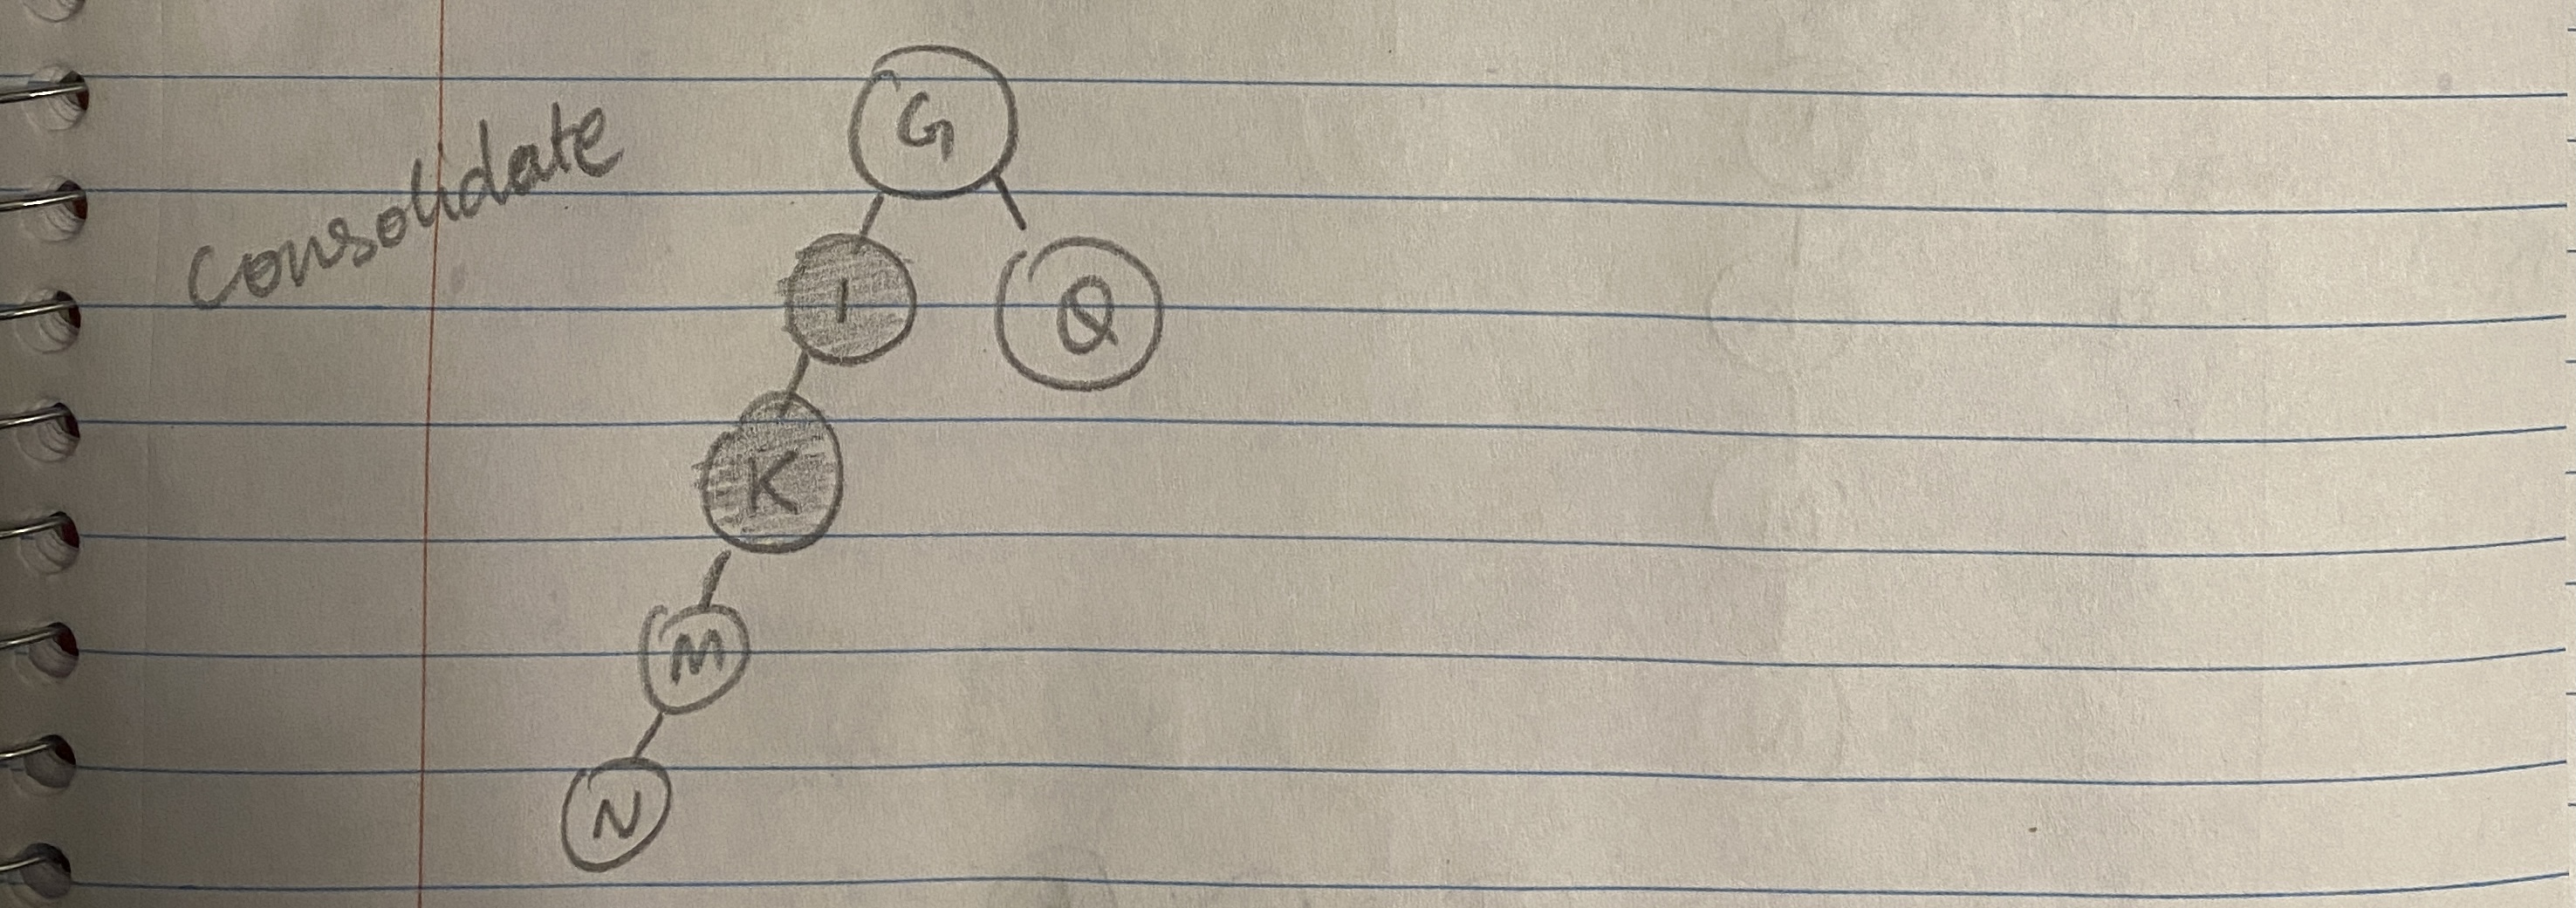 consolidate
G
I
Q
K
M
N